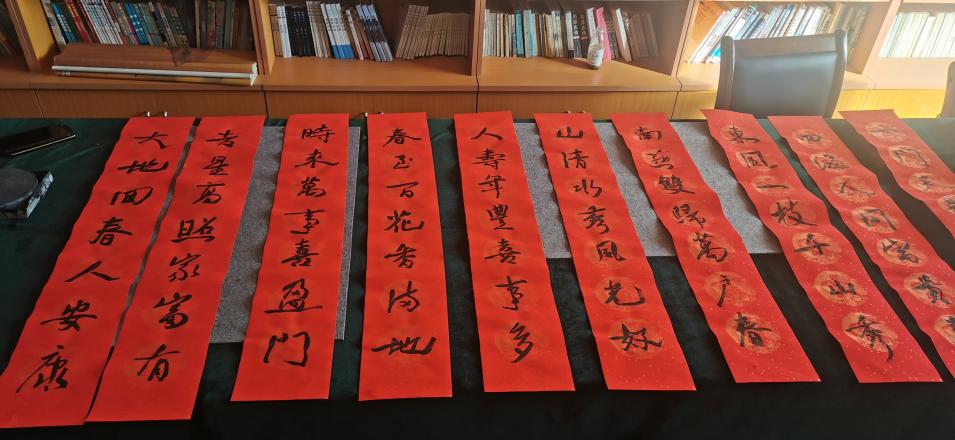 人間富貴
東風一枝千山秀
南燕雙歸萬户春
山清水秀風光好
人壽年豐喜事多
春至百花香满地
時来萬事喜盈門
吉星高照家富有
大地回春人安康